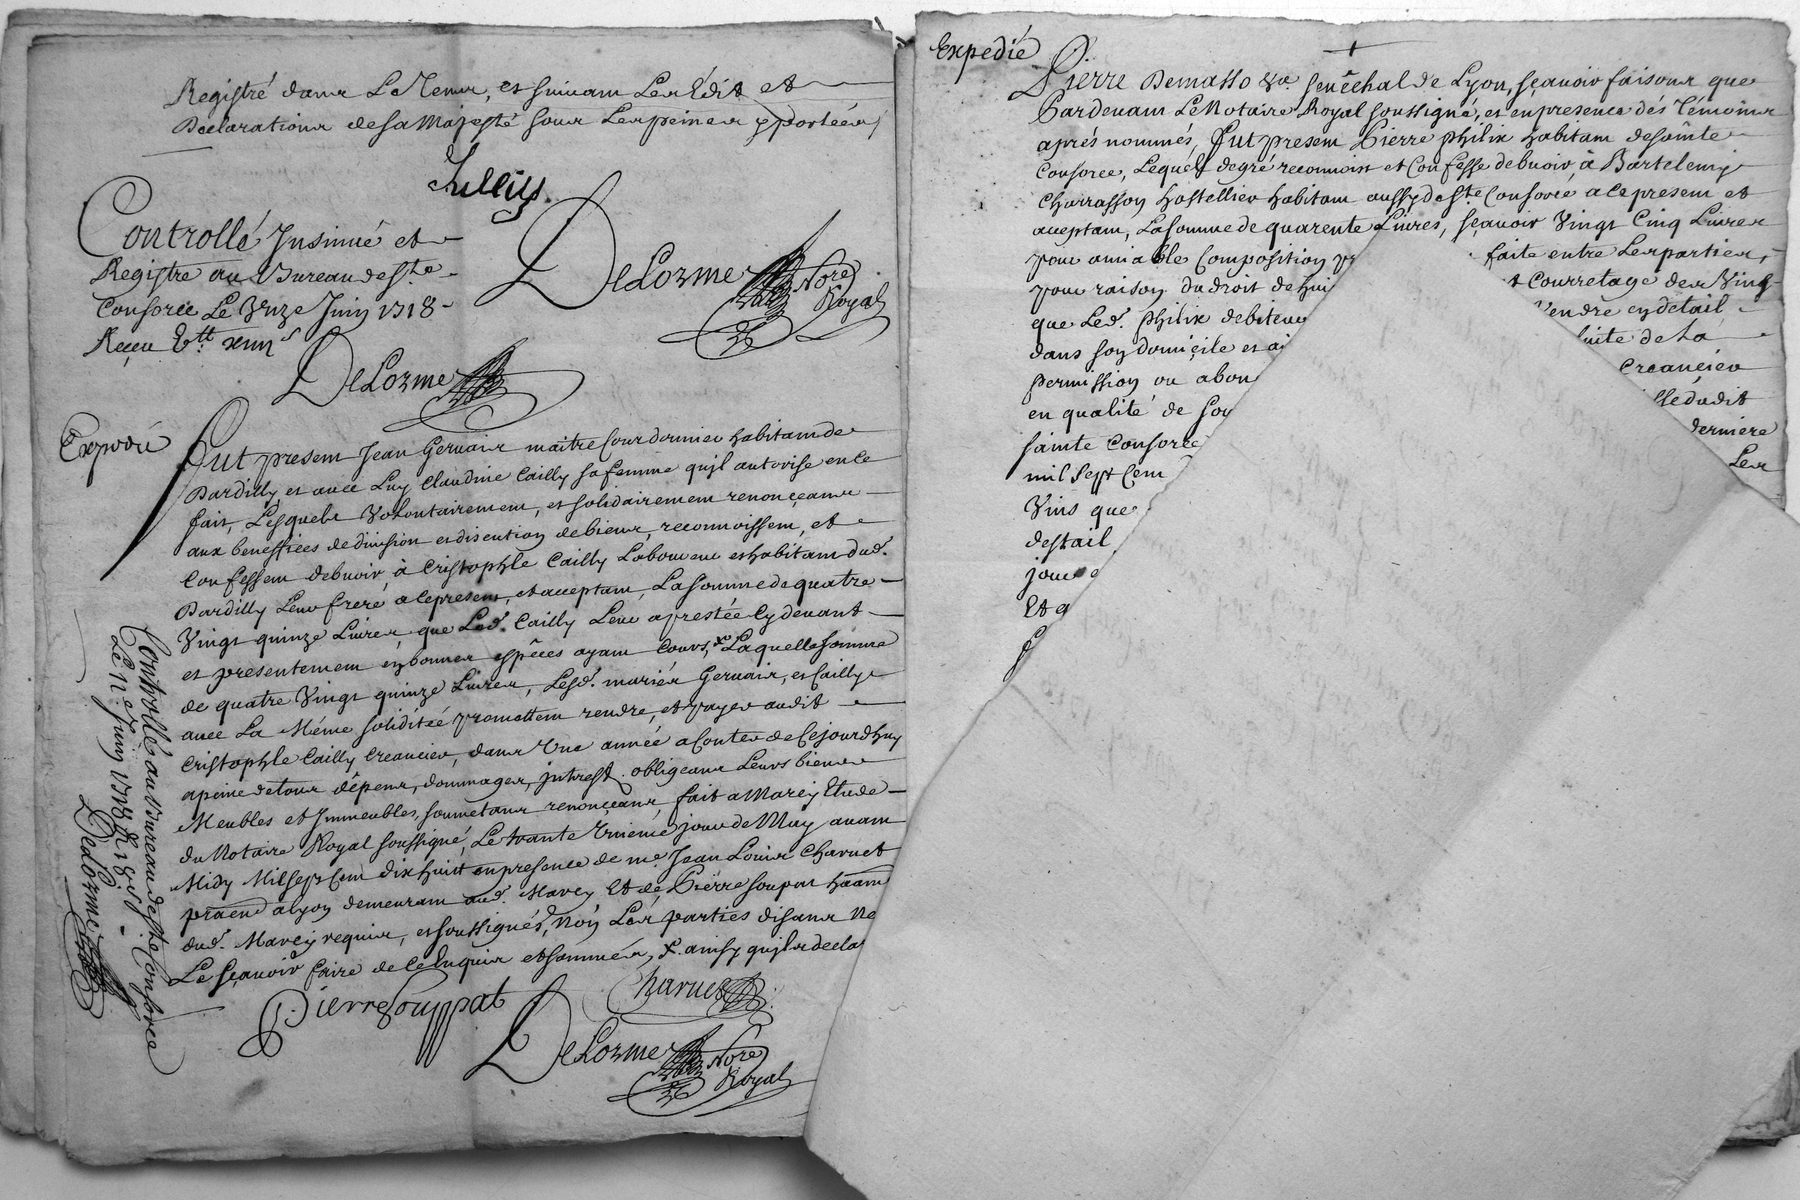 Registré dans Le Tems, et suivant Les Édit et
Declarations de sa Majesté sous Les peines y portées
Jullin
Controllé Insinué et
Registré au Bureau de Ste
Consorce Le Unze Juin 1718
Reçeu
DeLorme Nore
Royal
DeLorme
Expedié
Fut present Jean Gervais maitre Cour donnier habitant de
Dardilly, et avec Luy Claudine Cailly sa femme qu'jl autorise en Ce
fait, Lesquels Volontairement, et solidairement renonçeans
aux beneffices de division et discution de biens, reconnoissent, et
Confessent debvoir, à Cristophle Cailly Laboureur et habitant dud.
Dardilly Leur frere, a Ce present, et acceptant, La somme de quatre
Vingt quinze Livres, que Led. Cailly Leur a prestée Cy devant
et presentement en bonnes espêces ayant Cours, x Laquelle somme
de quatre Vingt quinze Livres, Lesd. mariés Gervais, et Cailly
avec La Même solidité promettent rendre, et payer audit
Cristophle Cailly Creancier, dans Une année a Conter de Ce jourdhuy
a peine de tous dêpens, dommages, jntrest. obligeans Leurs biens
Meubles et Jmmeubles, soumetans renonçeans, fait a Marcy Etude
du Notaire Royal soussigné, Le trante Unieme jour de May avant
Midy Mil sept Cent dix huit en presence de me. Jean Louis Charvet
praen a Lyon demeurant aud. Marcy, Et de Pierre soupat haant
dud. Marcy requis, et soussignés, Non Les parties disans Ne
Le Sçavoir faire de Ce Enquis et sommés, x. ainsy qu'jls decla
Pierre Souppat
Charvet
DeLorme Nore
Royal
Controllé au Bureau de Ste Consorce
Le 11e Juin 1718
DeLorme
Expedié
Pierre Demasso &a. Senêchal de Lyon, sçavoir faisons que
Pardevant Le Notaire Royal soussigné, et en presence des Témoins
aprés nommés, Fut present Pierre philix habitant de sainte
Consorce, Lequel de gré reconnoist et Confesse debvoir, à Bartelemy
Charrasson hostellier habitant aussy de Ste Consorce, a Ce present et
aceptant, La somme de quarente Livres, sçavoir Vingt Cinq Livres
pour amiable Composition
faite entre Les parties,
pour raison du droit de hui
t Courretage des Ving
que Led. Philix debiteur
Vendre en detail
dans son domicile et
suite de La
permission ou abon
Creancier
en qualité de
dudit
sainte Consorce
derniere
mil sept Cent
Les
Vins que
destail
jour
Et